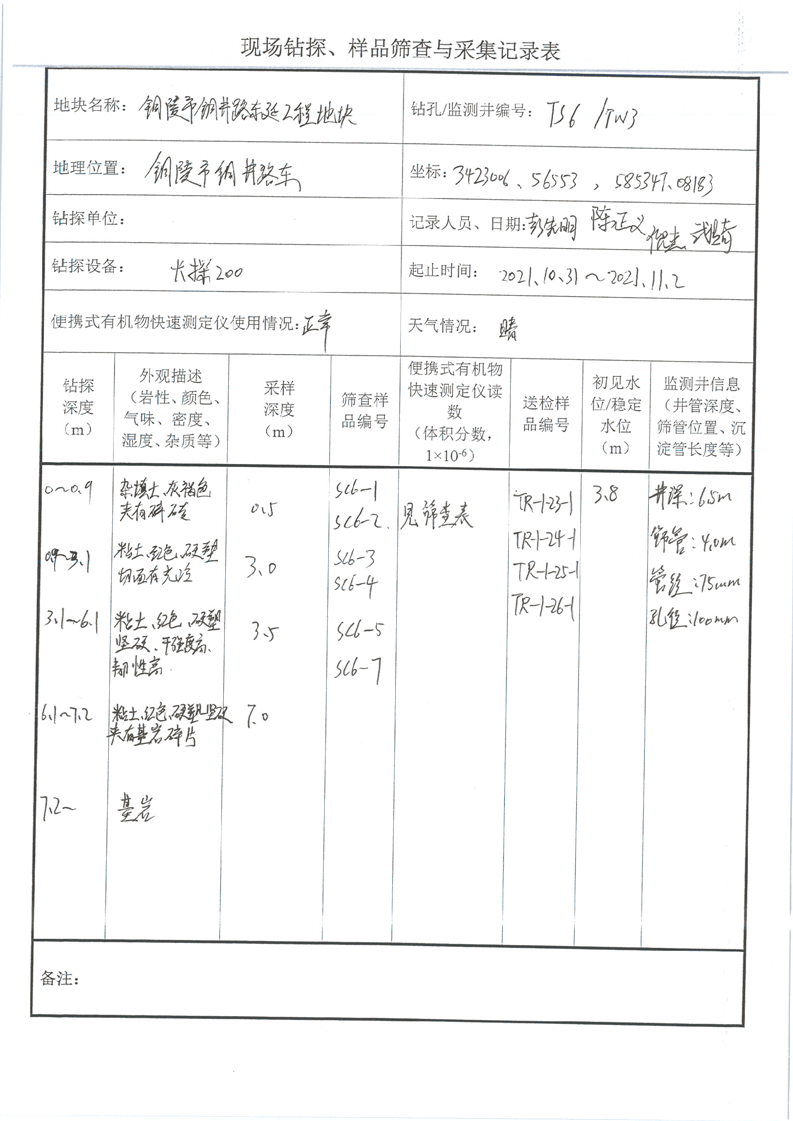 现场钻探、样品筛查与采集记录表
地块名称：铜陵市铜井路东延工程地块
钻孔/监测井编号：TS6 /TW3
地理位置：铜陵市铜井路东
坐标：3423006、56553，585347.08183
钻探单位：
记录人员、日期：陈正义
钻探设备：大探200
起止时间：2021.10.31～2021.11.2
便携式有机物快速测定仪使用情况：正常
天气情况：晴
钻探
深度
（m）
外观描述
（岩性、颜色、
气味、密度、
湿度、杂质等）
采样
深度
（m）
筛查样
品编号
便携式有机物
快速测定仪读
数
（体积分数，
1×10-6）
送检样
品编号
初见水
位/稳定
水位
（m）
监测井信息
（井管深度、
筛管位置、沉
淀管长度等）
0～0.9
杂填土、灰褐色
夹有碎砖
0.5
SC6-1
SC6-2
见筛查表
TR-1-23-1
3.8
井深：6.5m
0.9～3.1
粘土、红色、硬塑
切面有光泽
3.0
SC6-3
SC6-4
TR-1-24-1
TR-1-25-1
筛管：4.0m
管径：75mm
3.1～6.1
粘土、红色、硬塑
坚硬、干强度高、
韧性高.
3.5
SC6-5
SC6-7
TR-1-26-1
孔径：100mm
6.1～7.2
粘土、红色、硬塑坚硬
夹有基岩碎片
7.0
7.2～
基岩
备注：